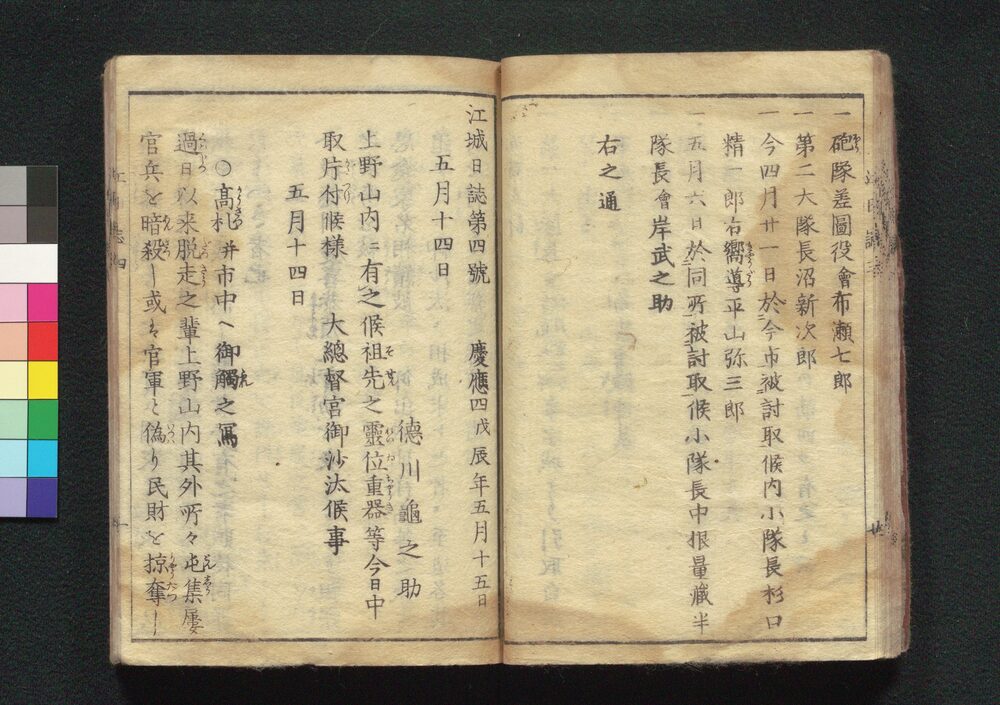 一 砲隊差圖役會布瀬七郎
一 第二大隊長沼新次郎
一 今四月廿一日於今市被討取候内小隊長杉口
精一郎右嚮導平山弥三郎
一 五月六日於同所被討取候小隊長中根量蔵半
隊長會岸武之助
右之通
江城日誌第四號 慶應四戊辰年五月十五日
五月十四日
徳川龜之助
上野山内ニ有之候祖先之靈位重器等今日中
取片付候様大總督官御沙汰候事
五月十四日
○高札并市中へ御觸之寫
過日以来脱走之輩上野山内其外所々屯集屡
官兵を暗殺し或は官軍と偽り民財を掠奪し